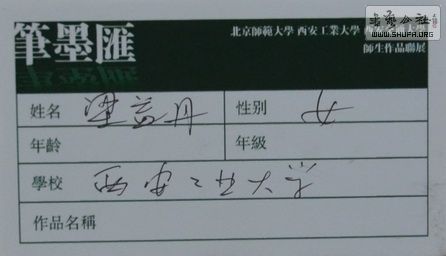 筆墨匯
北京師範大學 西安工業大學
師生作品聯展
書法公社
WWW.SHUFA.ORG
姓名 益丹 性别 女
年齡 年級
學校 西安工业大学
作品名稱